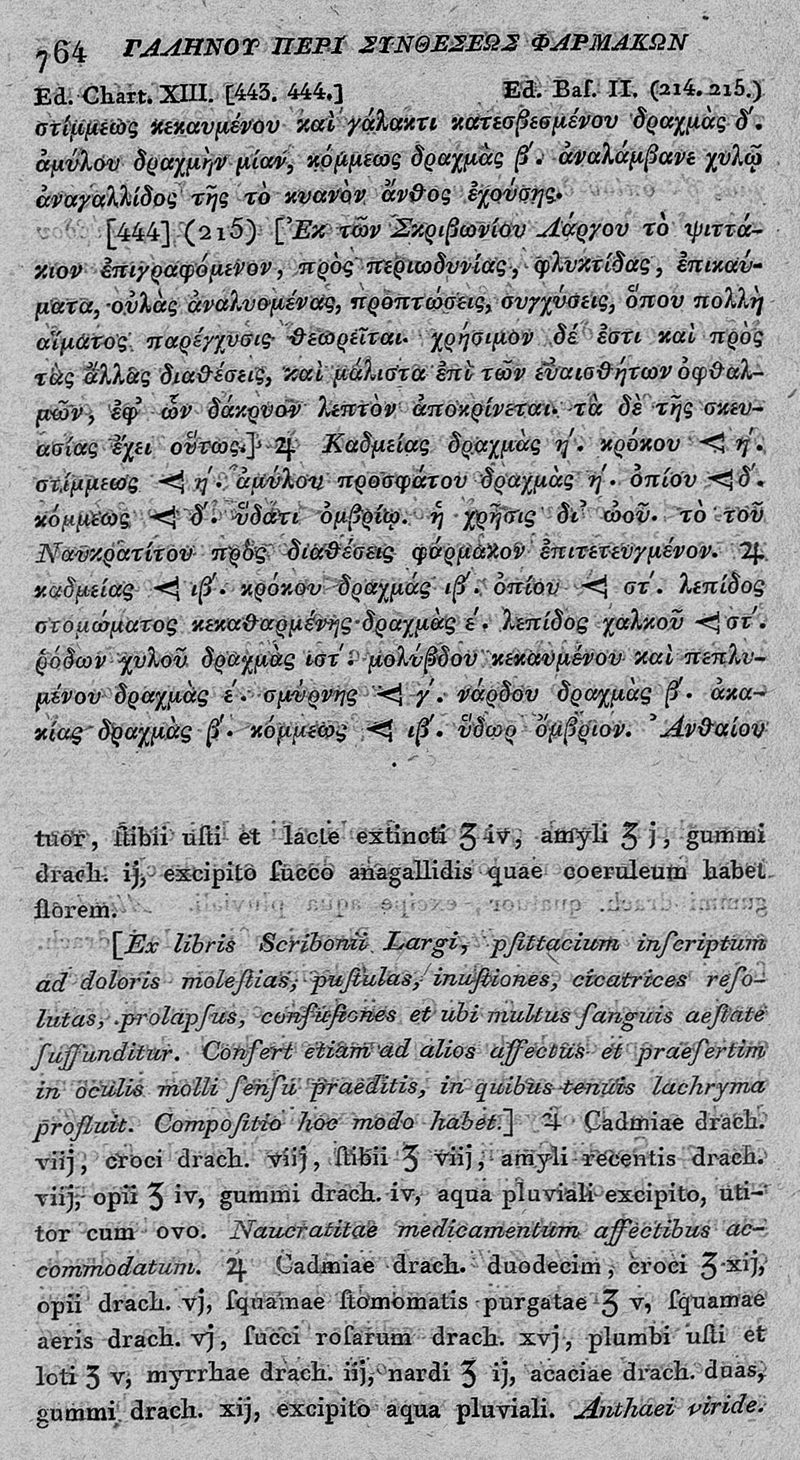 764 ΓΑΛΗΝΟΥ ΠΕΡΙ ΣΥΝΘΕΣΕΩΣ ΦΑΡΜΑΚΩΝ
Ed. Chart. XIII. [443. 444.] Ed. Baſ. II. (214. 215.)
στίμμεως κεκαυμένου καὶ γάλακτι κατεσβεσμένου δραχμὰς δʹ.
ἀμύλου δραχμὴν μίαν, κόμμεως δραχμὰς βʹ. ἀναλάμβανε χυλῷ
ἀναγαλλίδος τῆς τὸ κυανὸν ἄνθος ἐχούσης.
[444] (215) [Ἐκ τῶν Σκριβωνίου Λάργου τὸ ψιττά-
κιον ἐπιγραφόμενον, πρὸς περιωδυνίας, φλυκτίδας, ἐπικαύ-
ματα, οὐλὰς ἀναλυομένας, προπτώσεις, συγχύσεις, ὅπου πολλὴ
αἵματος παρέγχυσις θεωρεῖται. χρήσιμον δέ ἐστι καὶ πρὸς
τὰς ἄλλας διαθέσεις, καὶ μάλιστα ἐπὶ τῶν εὐαισθήτων ὀφθαλ-
μῶν, ἐφ' ὧν δάκρυον λεπτὸν ἀποκρίνεται. τὰ δὲ τῆς σκευ-
ασίας ἔχει οὕτως.] ♃ Καδμείας δραχμὰς ηʹ. κρόκου ⋖ ηʹ.
στίμμεως ⋖ ηʹ. ἀμύλου προσφάτου δραχμὰς ηʹ. ὀπίου ⋖ δʹ.
κόμμεως ⋖ δʹ. ὕδατι ὀμβρίῳ. ἡ χρῆσις δι' ὠοῦ. τὸ τοῦ
Ναυκρατίτου πρὸς διαθέσεις φάρμακον ἐπιτετευγμένον. ♃
καδμείας ⋖ ιβʹ. κρόκου δραχμάς ιβʹ. ὀπίου ⋖ στʹ. λεπίδος
στομώματος κεκαθαρμένης δραχμὰς εʹ. λεπίδος χαλκοῦ ⋖ στʹ.
ῥόδων χυλοῦ δραχμὰς ιστʹ. μολύβδου κεκαυμένου καὶ πεπλυ-
μένου δραχμὰς εʹ. σμύρνης ⋖ γʹ. νάρδου δραχμὰς βʹ. ἀκα-
κίας δραχμὰς βʹ. κόμμεως ⋖ ιβʹ. ὕδωρ ὄμβριον. Ἀνθαίου
tuor, ſtibii uſti et lacte extincti ʒ iv, amyli ʒ j, gummi
drach. ij, excipito ſucco anagallidis quae coeruleum habet
florem.
[Ex libris Scribonii Largi, pſittacium inſcriptum
ad doloris moleſtias, puſtulas, inuſtiones, cicatrices reſo-
lutas, prolapſus, confuſiones et ubi multus ſanguis aeſtate
ſuffunditur. Confert etiam ad alios affectus et praeſertim
in oculis molli ſenſu praeditis, in quibus tenuis lachryma
profluit. Compoſitio hoc modo habet.] ♃ Cadmiae drach.
viij, croci drach. viij, ſtibii ʒ viij, amyli recentis drach.
viij, opii ʒ iv, gummi drach. iv, aqua pluviali excipito, uti-
tor cum ovo. Naucratitae medicamentum affectibus ac-
commodatum. ♃ Cadmiae drach. duodecim, croci ʒ xij,
opii drach. vj, ſquamae ſtomomatis purgatae ʒ v, ſquamae
aeris drach. vj, ſucci roſarum drach. xvj, plumbi uſti et
loti ʒ v, myrrhae drach. iij, nardi ʒ ij, acaciae drach. duas,
gummi drach. xij, excipito aqua pluviali. Anthaei viride.